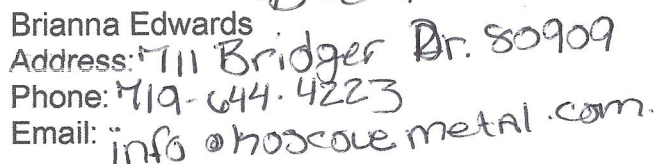 Brianna Edwards
Address: 711 Bridger Dr. 80909
Phone: 719-644.4223
Email: info@hoscovemetal.com.